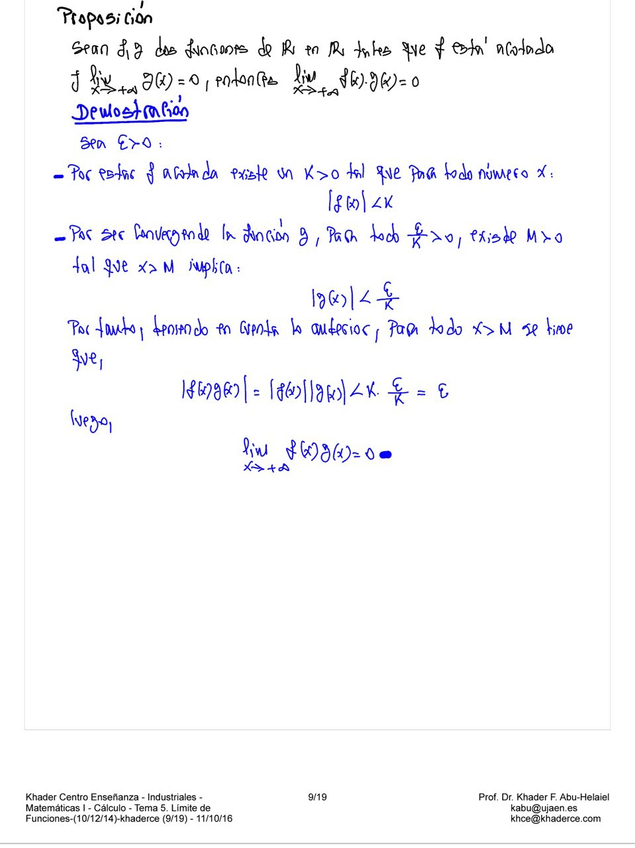 Proposición
Sean f, g dos funciones de ℝ en ℝ tales que f está acotada
y lim x→+∞ g(x) = 0, entonces lim x→+∞ f(x)·g(x) = 0
Demostración
Sea ε>0:
- Por estar f acotada existe un K>0 tal que para todo número x:
|f(x)| < K
- Por ser convergende la función g, para todo ε/K > 0, existe M>0
tal que x>M implica:
|g(x)| < ε/K
Por tanto, teniendo en cuenta lo anterior, para todo x>M se tiene
que,
|f(x)g(x)| = |f(x)||g(x)| < K· ε/K = ε
luego,
lim x→+∞ f(x)g(x) = 0
Khader Centro Enseñanza - Industriales -
Matemáticas I - Cálculo - Tema 5. Límite de
Funciones-(10/12/14)-khaderce (9/19) - 11/10/16
9/19
Prof. Dr. Khader F. Abu-Helaiel
kabu@ujaen.es
khce@khaderce.com